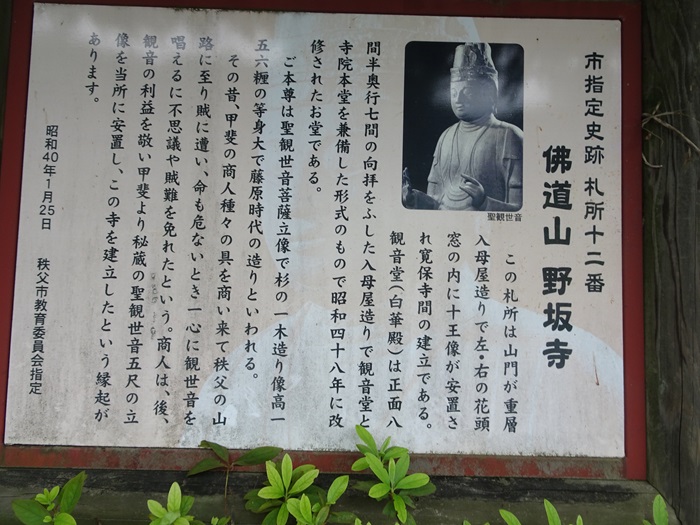 市指定史跡 札所十二番
佛道山 野坂寺
この札所は山門が重層
入母屋造りで左・右の花頭
窓の内に十王像が安置さ
れ寛保寺間の建立である。
観音堂(白華殿)は正面八
間半奥行七間の向拝をふした入母屋造りで観音堂と
寺院本堂を兼備した形式のもので昭和四十八年に改
修されたお堂である。
ご本尊は聖観世音菩薩立像で杉の一木造り像高一
五六糎の等身大で藤原時代の造りといわれる。
その昔、甲斐の商人種々の具を商い来て秩父の山
路に至り賊に遭い、命も危ないとき一心に観世音を
唱えるに不思議や賊難を免れたという。商人は、後、
観音の利益を敬い甲斐より秘蔵の聖観世音五尺の立
像を当所に安置し、この寺を建立したという縁起が
あります。
昭和40年1月25日 秩父市教育委員会指定
聖観世音